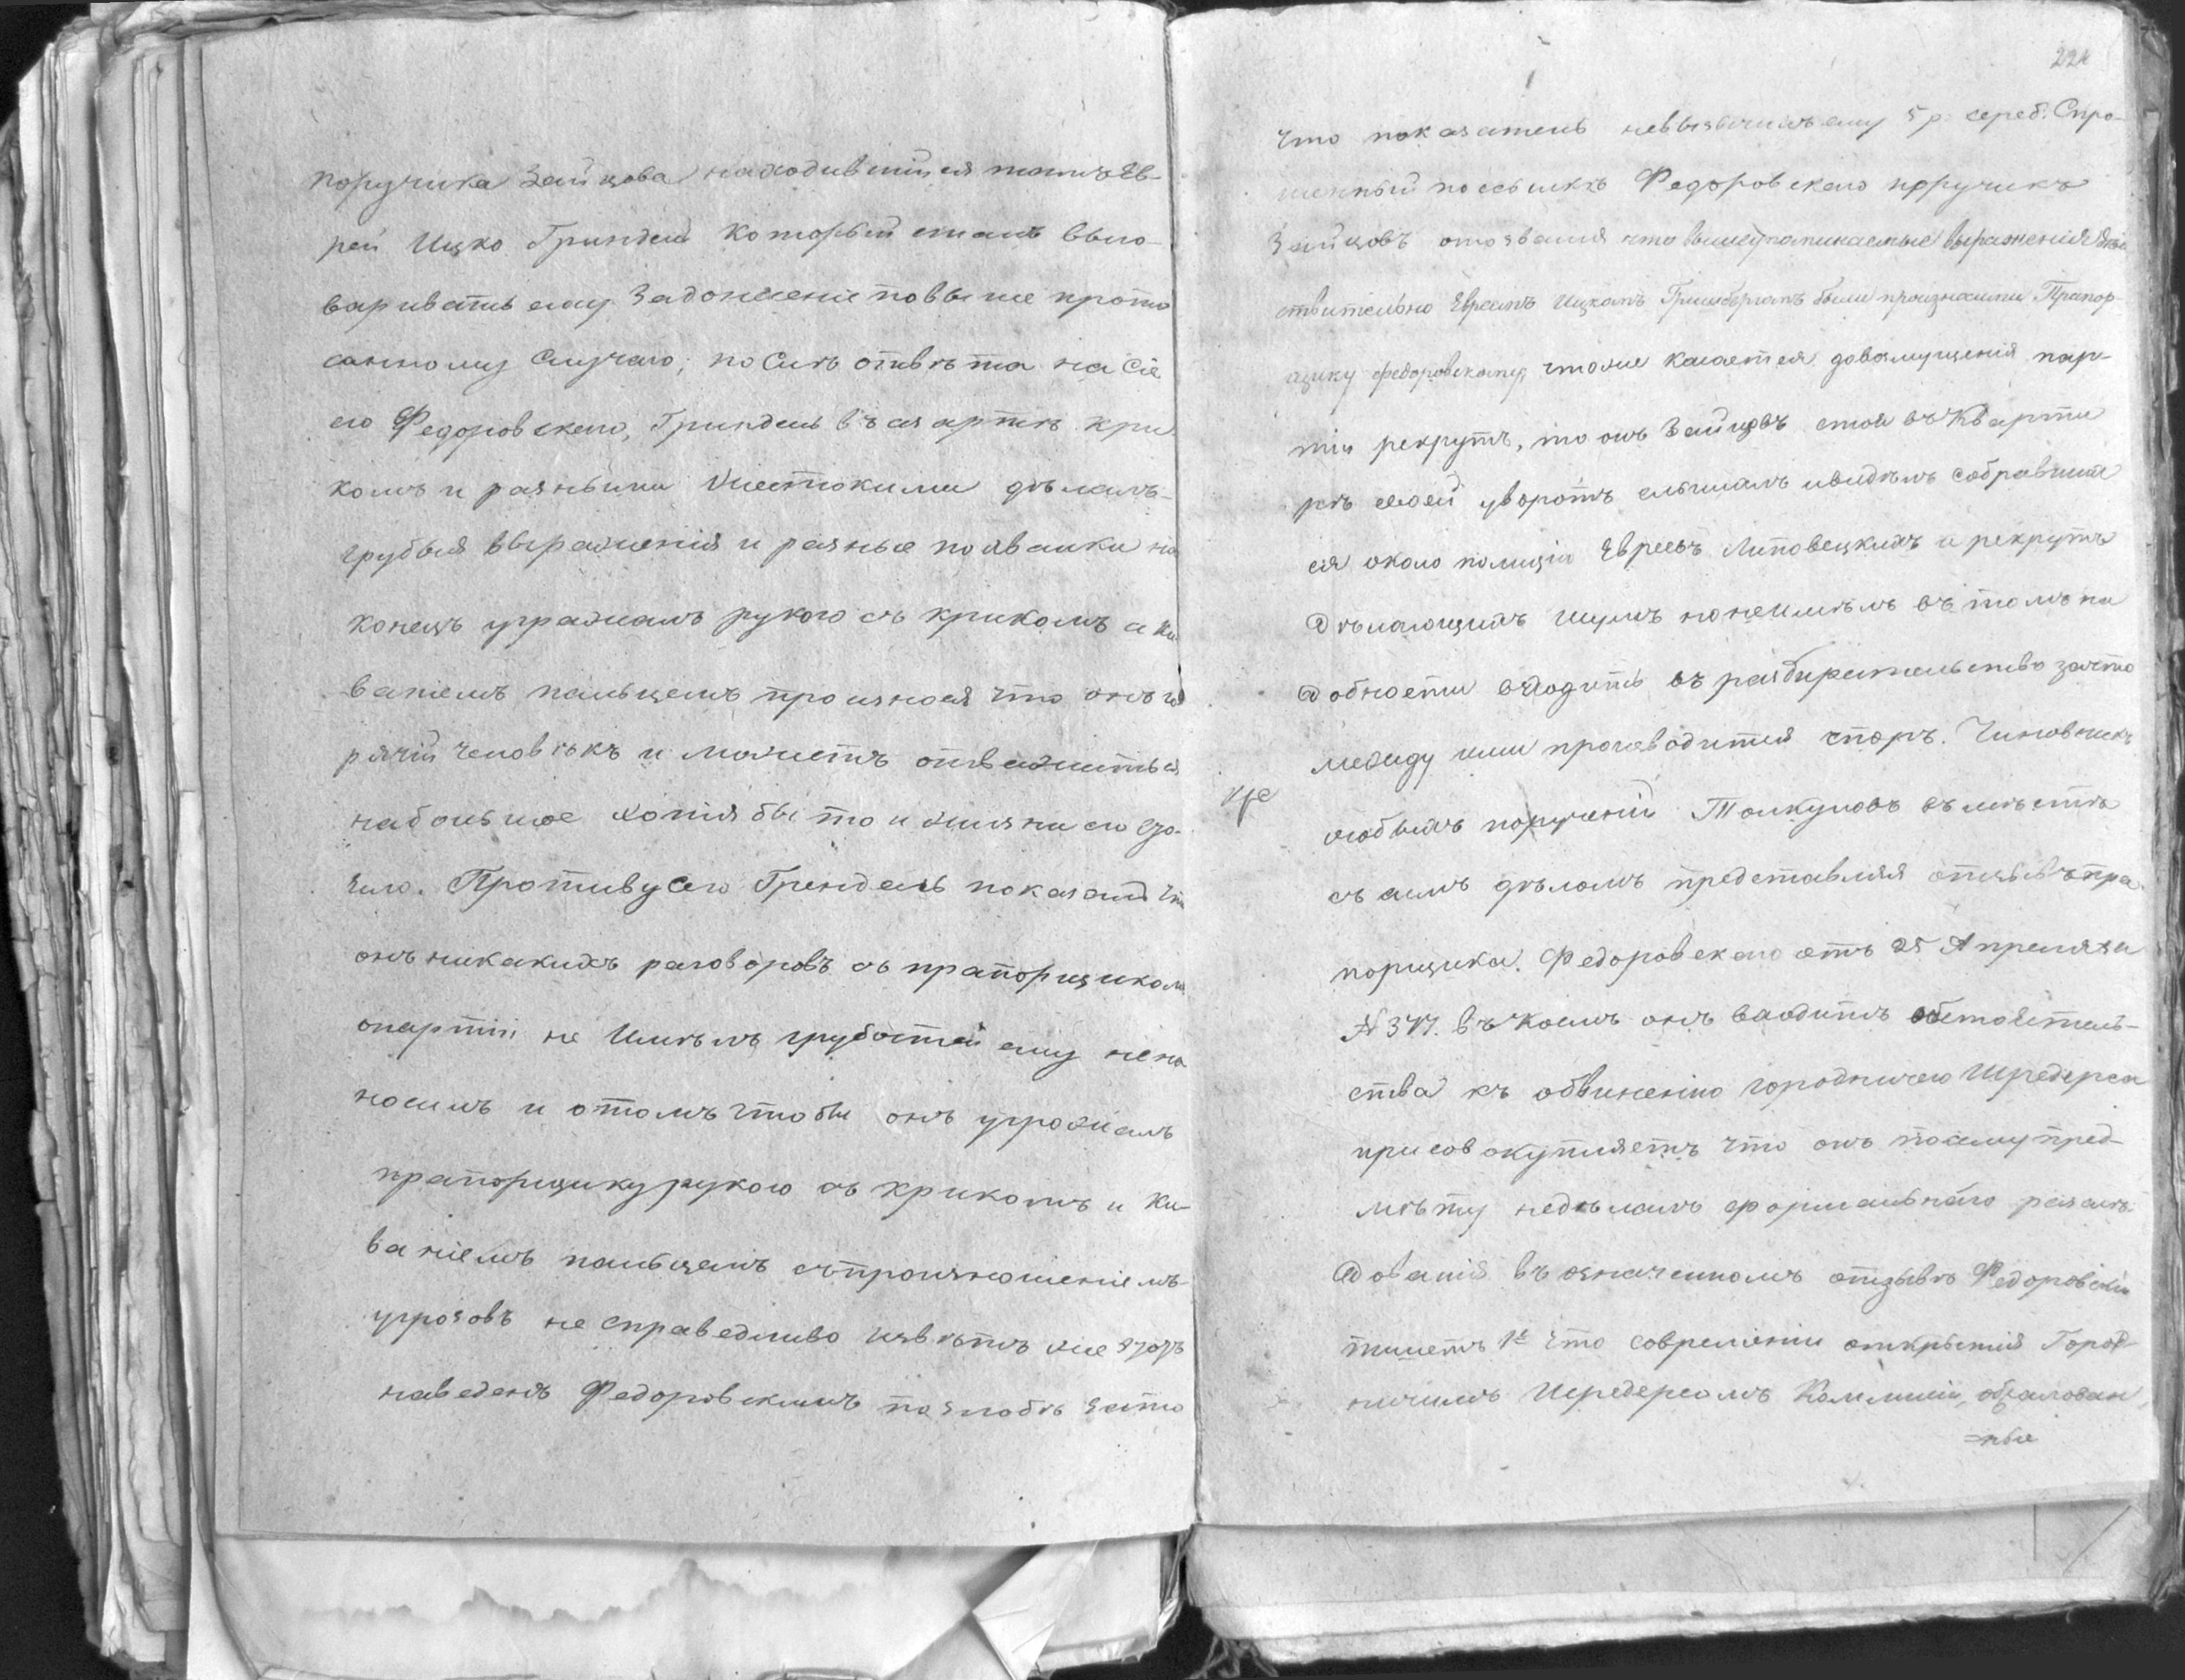 поручика Зайцова находившійся тамъ Ев-
рей Ицко Гриндель который сталъ выго-
варивать ему За донесеніе повыше пропи
санному Случаю; после ответа на сіе
его Федоровскаго, Гриндель въ азарте кри-
комъ и разными жестокими делалъ
грубыя выраженія и разные похвалки на
конецъ угражалъ рукою съ крикомъ и ки
ваніемъ пальцемъ произнося что онъ го
рячій человекъ и можетъ отважиться
на большое хотя бы то и жизни его
чило. Противу сего Грендель показалъ что
онъ никакихъ разговоровъ съ прапорщикомъ
опартіи не имелъ грубостей ему нена
носилъ и о томъ что бы онъ угрожалъ
прапорщику рукою съ крикомъ и ки-
ваніемъ пальцемъ съ произношеніемъ
угрозовъ не справедливо изветъ же
наведенъ Федоровскимъ по злобе зато
224
что показатель невызычилъ ему 5 р. сереб. Спро-
шенный по ссылке Федоровскаго поручикъ
Зайцовъ отозвался что вышеупоминаемые выраженія дей
ствительно Евреемъ Ицкомъ Гринбергомъ были произнасими Прапор-
щику Федоровскому, чтоже касается до возмущенія пар-
тіи рекрутъ, то онъ Зайцовъ стоя въ Кварти
ре своей у воротъ слышалъ и виделъ собравших
ся около полиціи Евреевъ Липовецкихъ и рекрутъ
Делающихъ шумъ но не имелъ въ томъ на
Добности входить въ разбирательство за что
между ими производится споръ. Чиновникъ
особыхъ порученій Толкуновъ въ месте
съ симъ деломъ представляя отзывъ пра
порщика Федоровскаго отъ 25 Апреля за
№ 347. въ коемъ онъ вводитъ обстоятель-
ства къ обвиненію городничаго Шредерса
присовокупляетъ что онъ по сему пред-
мету неделалъ формальнаго разсле
Дованія въ означенномъ отзыве Федоровскій
пишетъ 1е что современи открытія Город-
ничимъ Шредерсомъ Коммисіи, обжалован
=ные